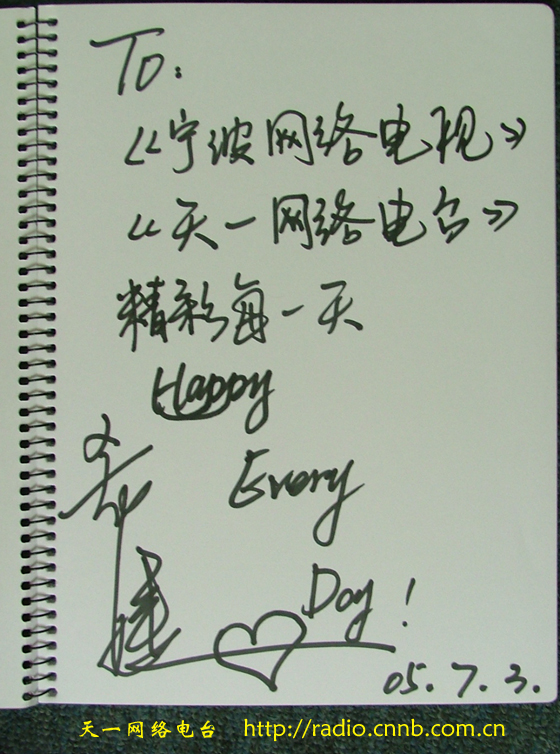 To:
《宁波网络电视》
《天一网络电台》
精彩每一天
Happy
Every
Day!
05.7.3.
天一网络电台 http://radio.cnnb.com.cn